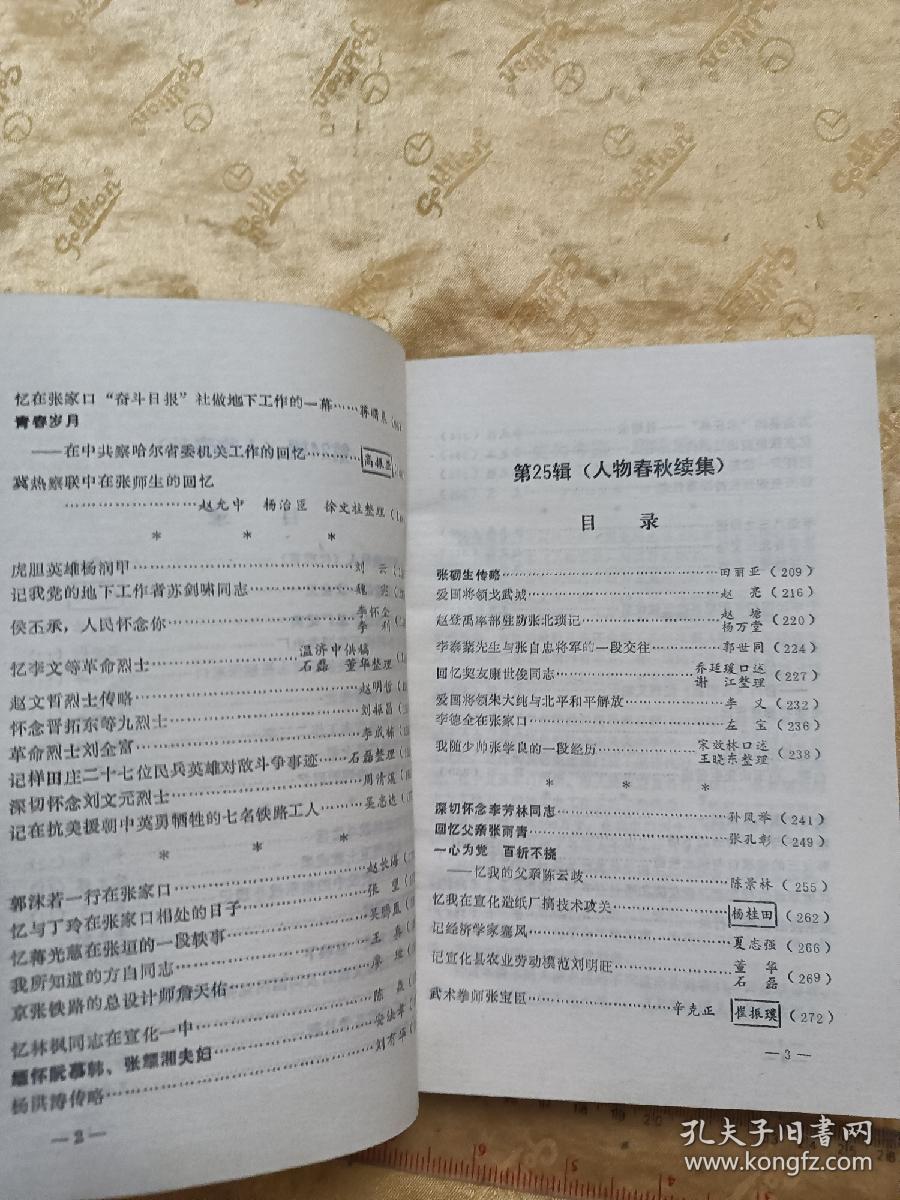 忆在张家口“奋斗日报”社做地下工作的一幕
青春岁月
——在中共察哈尔省委机关工作的回忆
冀热察联中在张师生的回忆
赵允中 杨治臣 徐文柱整理
* * *
虎胆英雄杨润甲 刘云
记我党的地下工作者苏剑啸同志
侯玉承，人民怀念你 李怀全 李利
忆李文等革命烈士 温济中供稿 石磊 董华整理
赵文哲烈士传略 赵明哲
怀念晋拓东等九烈士
革命烈士刘全富
记样田庄二十七位民兵英雄对敌斗争事迹 石磊整理
深切怀念刘文元烈士
记在抗美援朝中英勇牺牲的七名铁路工人
* * *
郭沫若一行在张家口 赵长海
忆与丁玲在张家口相处的日子
忆蒋光慈在张垣的一段轶事
我所知道的方自同志
京张铁路的总设计师詹天佑
忆林枫同志在宣化一中
缅怀阮慕韩、张耀湘夫妇
杨洪涛传略
—2—
第25辑（人物春秋续集）
目 录
张砺生传略 田丽亚（209）
爱国将领戈武城 赵亮（216）
赵登禹率部驻防张北琐记 赵塘 杨万堂（220）
李泰棻先生与张自忠将军的一段交往 郭世同（224）
回忆契友康世俊同志 乔廷瑗口述 谢江整理（227）
爱国将领朱大纯与北平和平解放 李义（232）
李德全在张家口 左宝（236）
我随少帅张学良的一段经历 宋效林口述 王晓东整理（238）
* * *
深切怀念李芳林同志 孙凤举（241）
回忆父亲张雨青 张孔彰（249）
一心为党 百折不挠
——忆我的父亲陈云歧 陈景林（255）
忆我在宣化造纸厂搞技术攻关 杨桂田（262）
记经济学家骞风 夏志强（266）
记宣化县农业劳动模范刘明旺 董华 石磊（269）
武术拳师张宝臣 辛克正 崔振璞（272）
—3—
孔夫子旧书网
www.kongfz.com